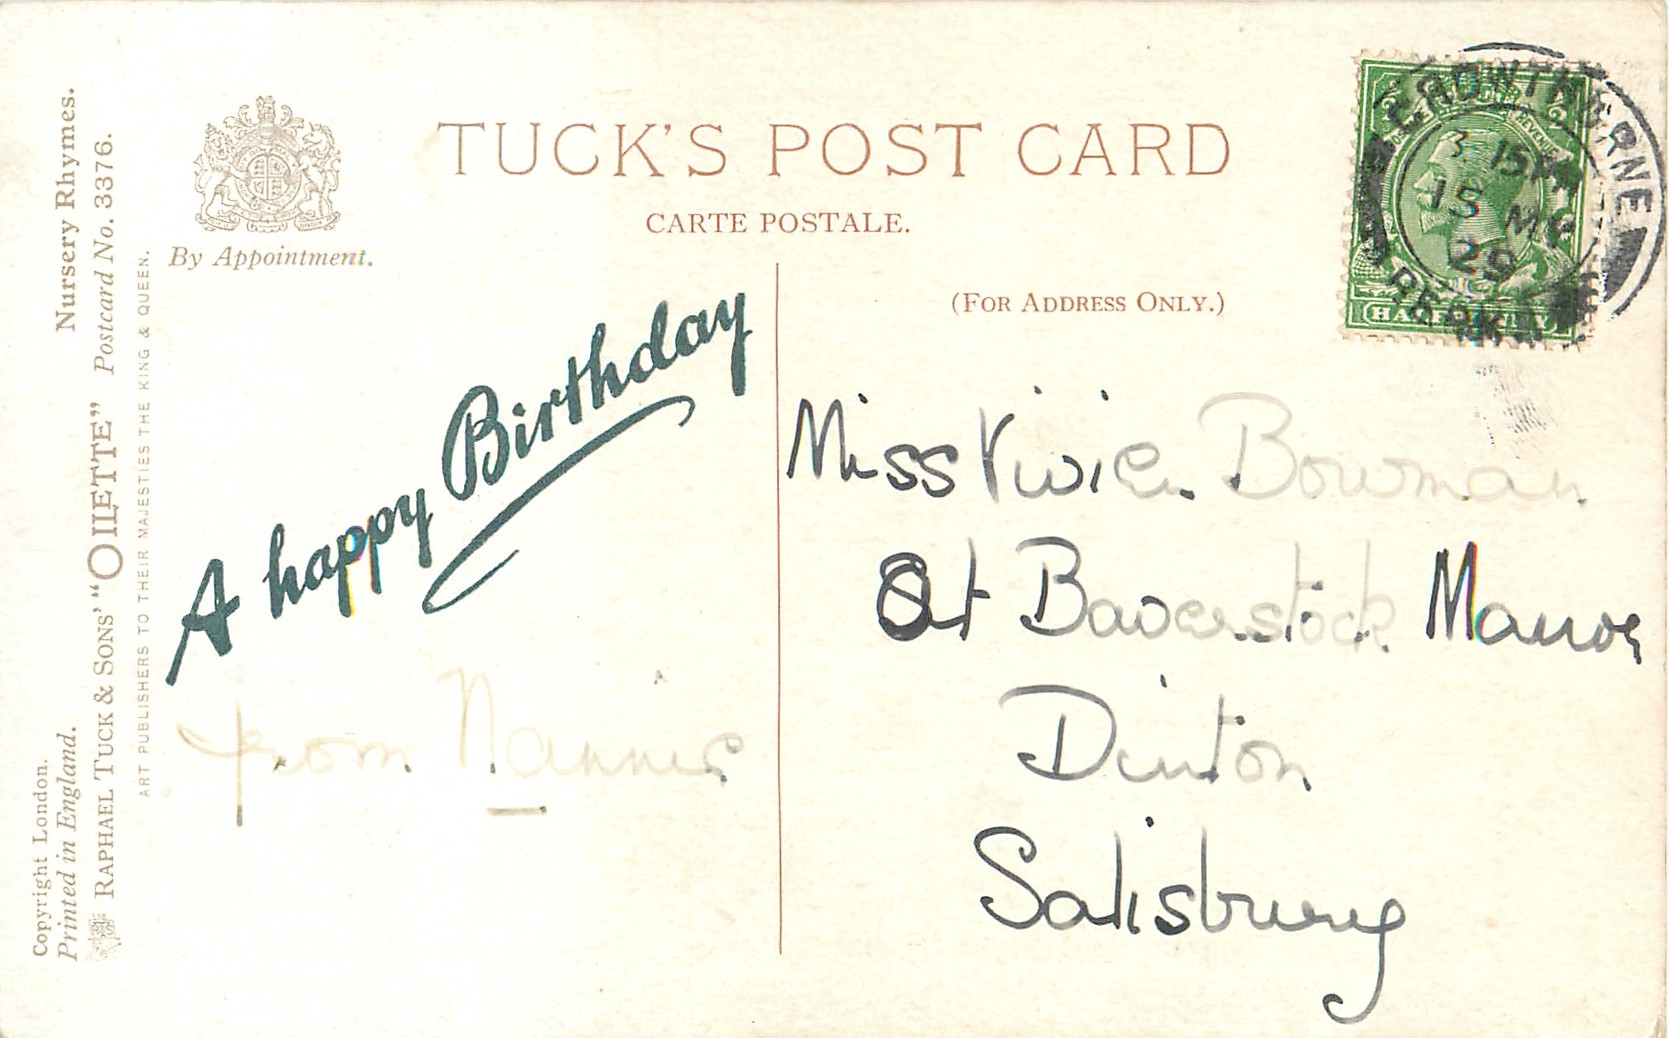 TUCK'S POST CARD
CARTE POSTALE.
By Appointment.
(FOR ADDRESS ONLY.)
Nursery Rhymes.
Postcard No. 3376.
RAPHAEL TUCK & SONS' "OILETTE"
ART PUBLISHERS TO THEIR MAJESTIES THE KING & QUEEN.
Copyright London.
Printed in England.
A happy Birthday
from Nannie
Miss Vivien Bowman
At Baverstock Manor
Dinton
Salisbury
CROWTHORNE
15
29
BERKS